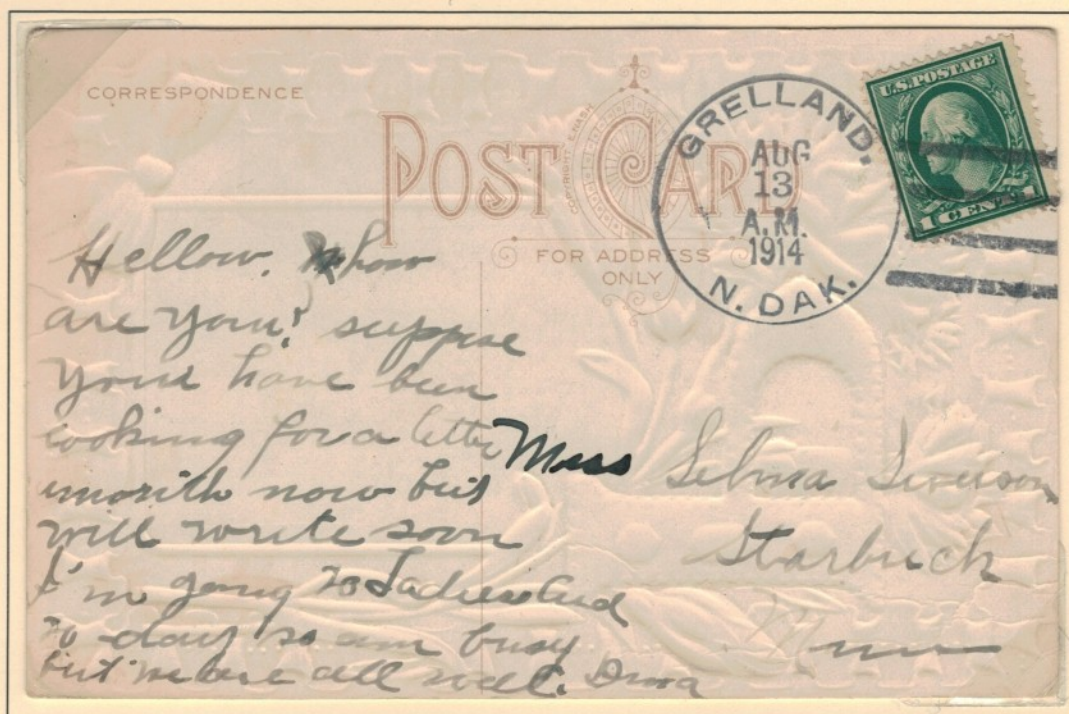 CORRESPONDENCE
POST CARD
FOR ADDRESS
ONLY
GRELLAND.
AUG
13
A.M.
1914
N. DAK.
U.S. POSTAGE
1 CENT 1
Hellow. how
are your? suppose
your have been
looking for a letter
now but
will write soon
I'm going to Ladies Aid
to day so am busy
but we are all well.
Miss Selma
Starbuck
Minn